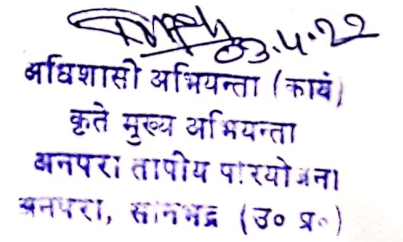 03.4.22
अधिशासी अभियन्ता (कार्य)
कृते मुख्य अभियन्ता
अनपरा तापीय परियोजना
अनपरा, सोनभद्र (उ० प्र०)